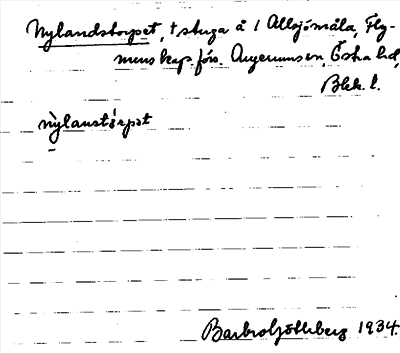 Nylandstorpet, † stuga å 1 Allsjömåla, Fly-
mens kap. förs. Augerumsen, Östra hd,
Blek. l.
nỳlanstárpət
Barbro Göthberg 1934.